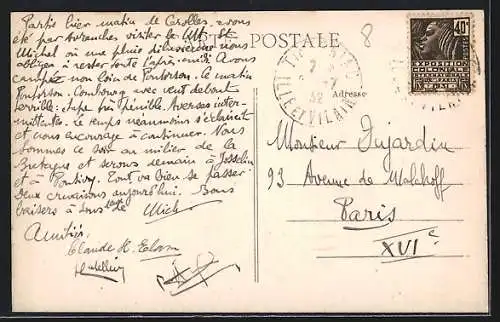 Partis hier matin de Carolles, avons
été par Avranches visiter le Mt St
Michel où une pluie diluvienne nous
obligea à rester toute l'après-midi. Avons
campé non loin de Pontorson. Ce matin
Pontorson-Combourg avec vent debout
terrible: étape très pénible. Averses inter-
mittentes. Le temps néanmoins s'éclaircit
et nous encourage à continuer. Nous
sommes ce soir au milieu de la
Bretagne et serons demain à Josselin
et à Pontivy. Tout va bien se passer.
Deux crevaisons aujourd'hui. Bons
baisers à tous
Mich
Amitiés
Claude
POSTALE
Adresse
8
ILLE ET VILAINE
7
32
40c
EXPOSITION
COLONIALE
INTERNATIONALE
PARIS
1931
Monsieur Dujardin
93 Avenue de Malakoff
Paris
XVIe